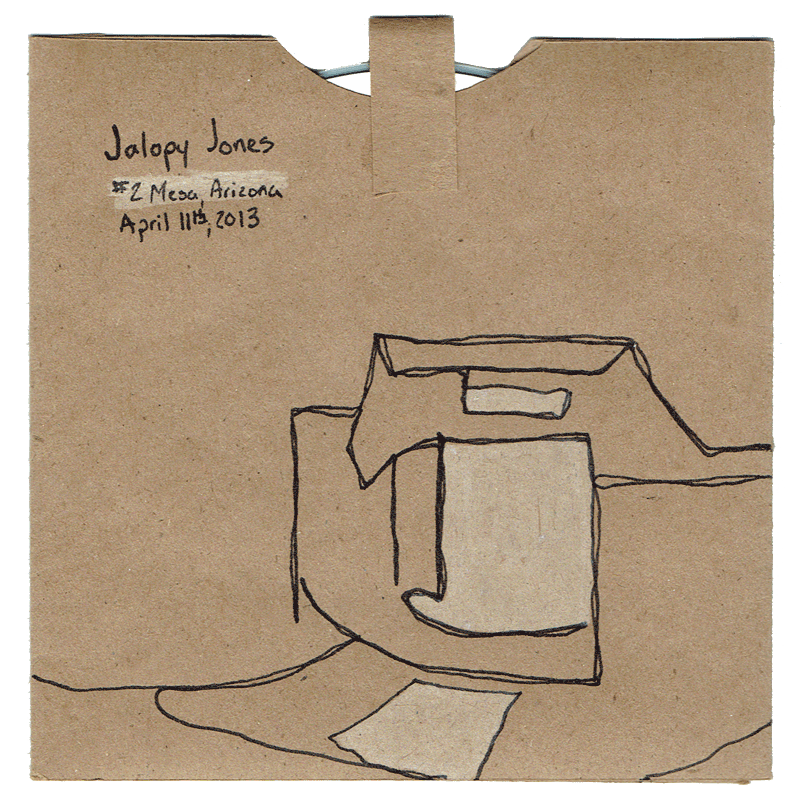 Jalopy Jones
#2 Mesa, Arizona
April 11th, 2013